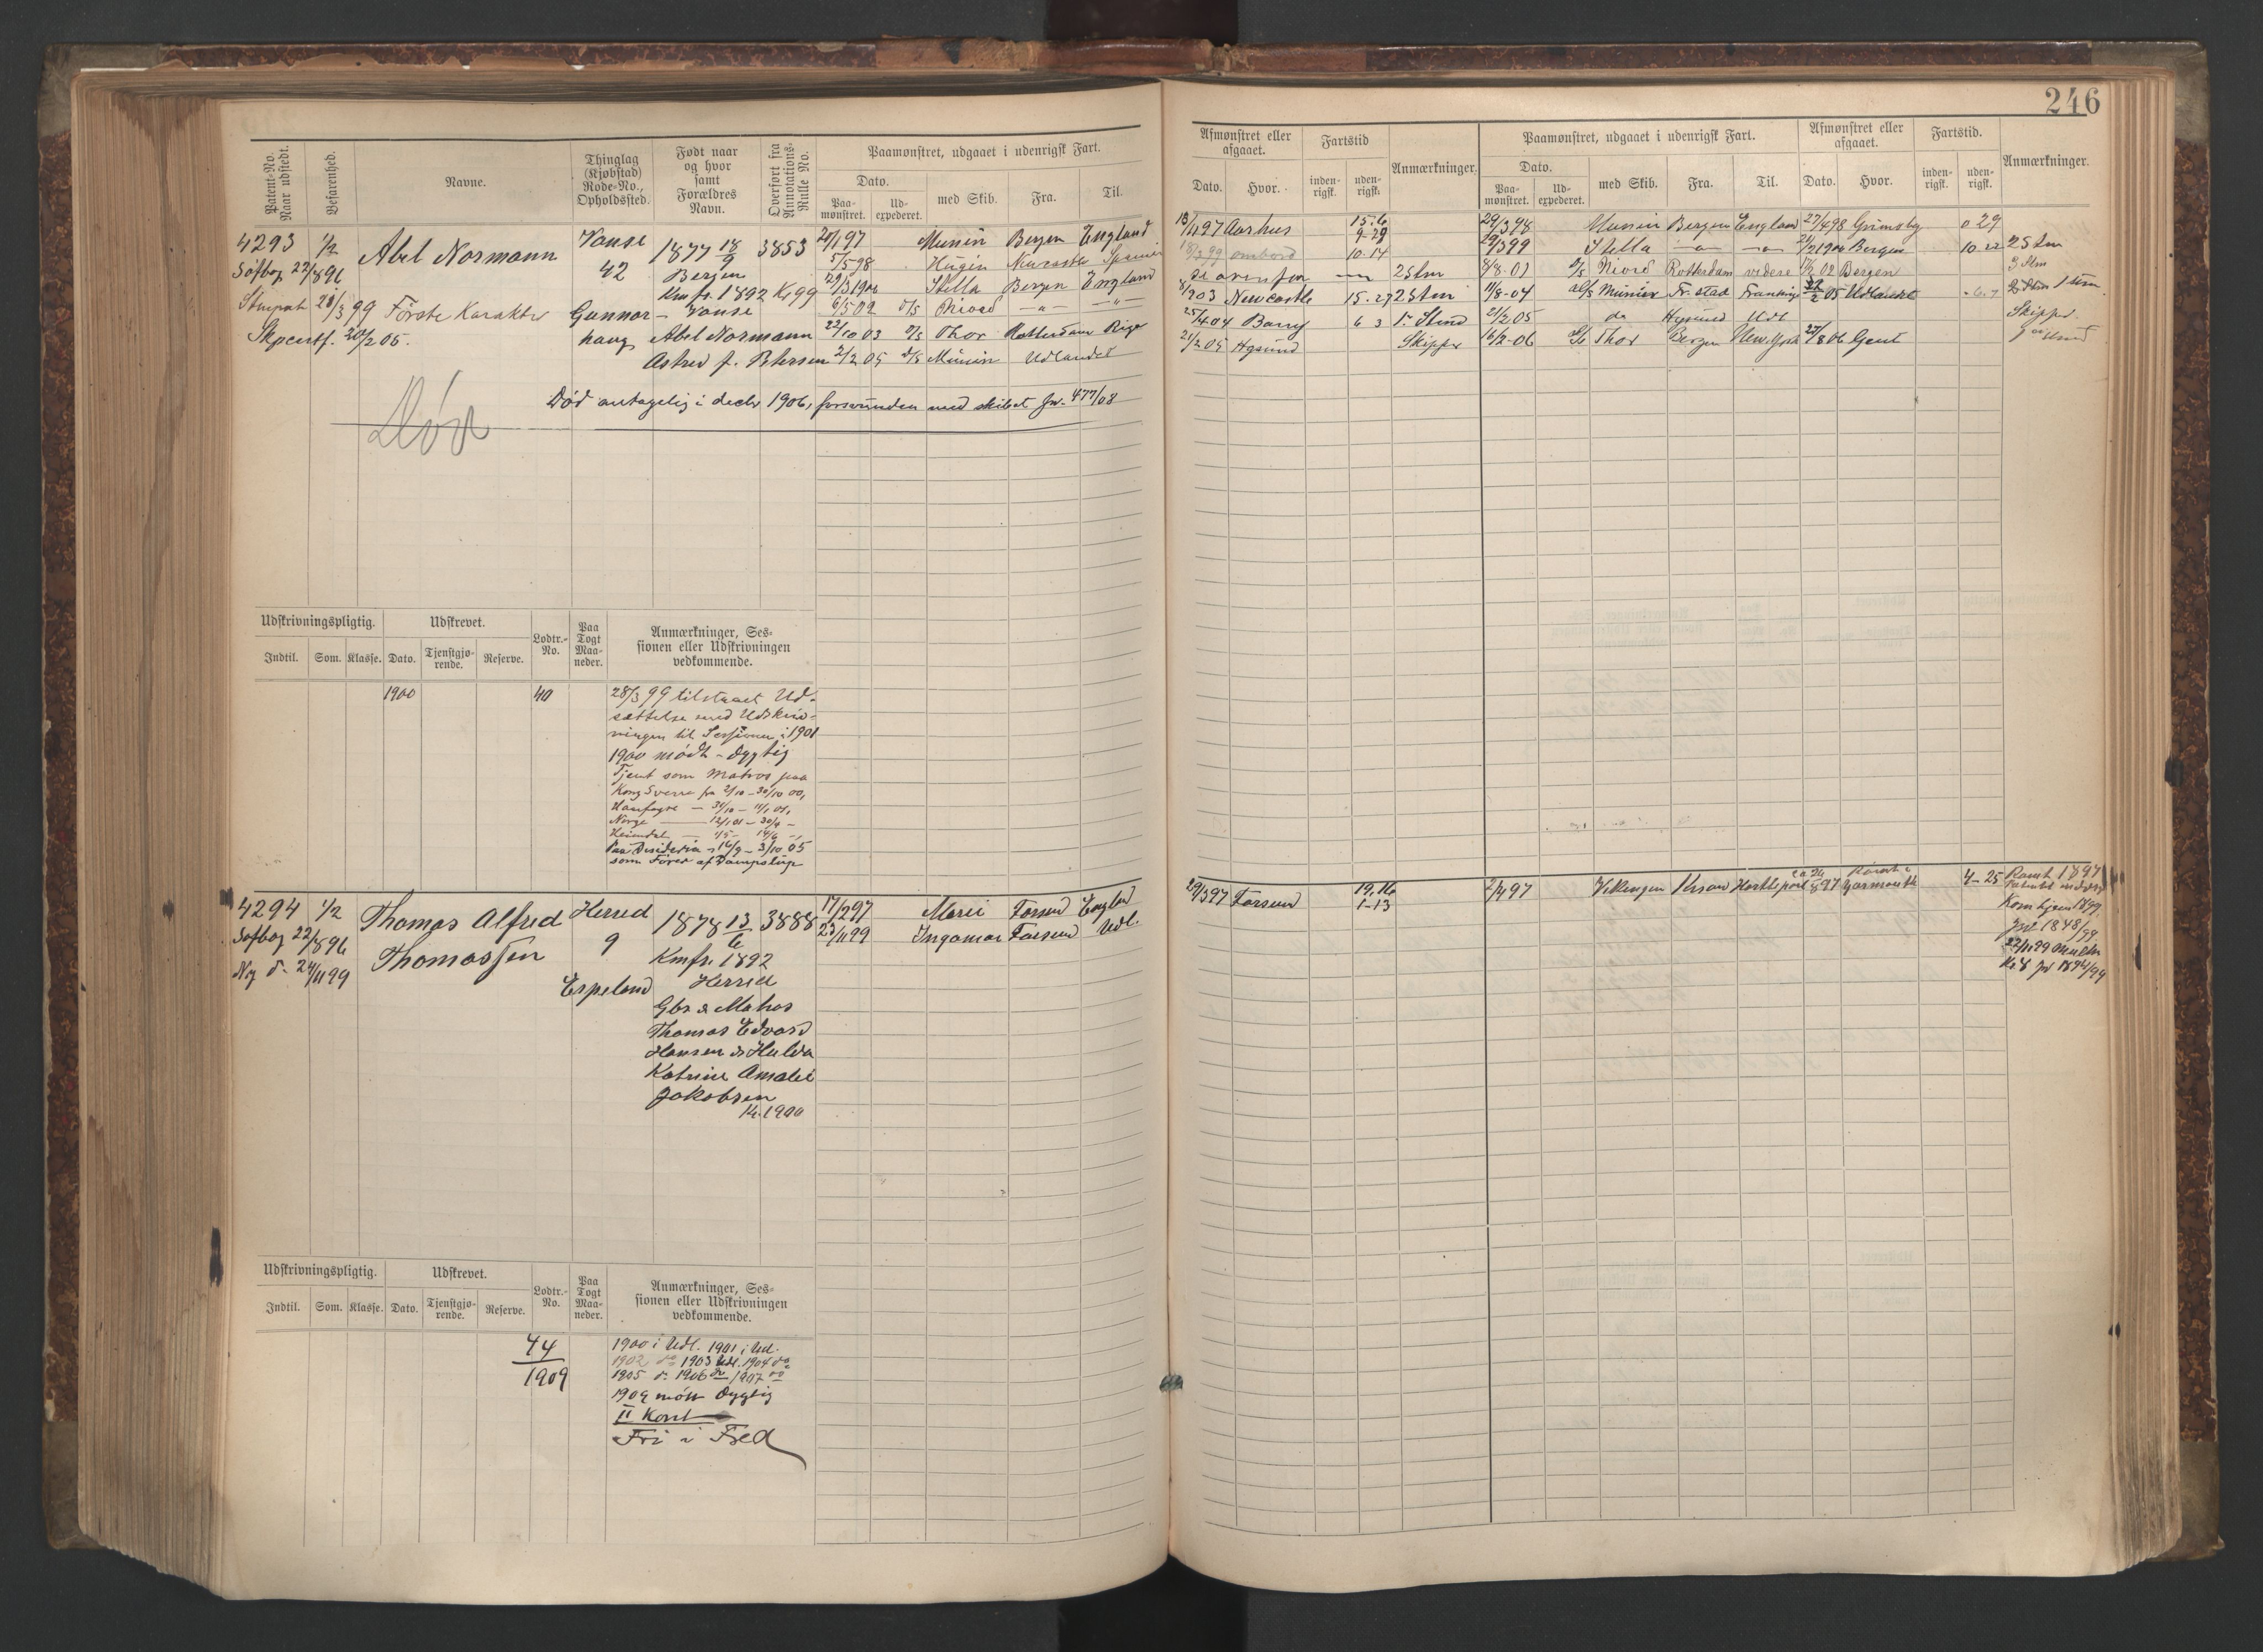 246
Patent-No. Naar udstedt.
Befarenhed.
Navne.
Thinglag (Kjøbstad) Rode-No., Opholdssted.
Født naar og hvor samt Forældres Navn.
Overført fra Annotations-Rulle No.
Paamønstret, udgaaet i udenrigsk Fart.
Dato.
Paa-mønstret.
Ud-expederet.
med Skib.
Fra.
Til.
Afmønstret eller afgaaet.
Dato.
Hvor.
Fartstid
inden-rigsk.
uden-rigsk.
Anmærkninger.
Paamønstret, udgaaet i udenrigsk Fart.
Dato.
Paa-mønstret.
Ud-expederet.
med Skib.
Fra.
Til.
Afmønstret eller afgaaet.
Dato.
Hvor.
Fartstid.
inden-rigsk.
uden-rigsk.
Anmærkninger.
4293
1/2
Søfbog 22/8 96
Stmpat 28/3 99 Første Karakter
Skpcertf. 20/2 05.
Abel Normann
Vanse
42
Gunnar-
haug
1877 18/9
Bergen
Kmfr. 1892
Vanse
Abel Normann
Astred f. Petersen
3853
K, 99
20/1 97 Munin Bergen England
5/5 98 Hugin Newcastle
29/3 1900 Stella Bergen England
6/5 02 D/S
22/10 03 D/S Thor Rotterdam Riga
2/2 05 D/S Munin Udlandet
Død antagelig i decbr 1906, forsvunden med skibet Jn. 477/08
Død
13/11 97 Aarhus 15.6
18/3 99 ombord 10-14
8/1 03 Newcastle 15-27 2 Stm
25/4 04 Barry 6 3 1. Stmd
21/2 05 Hgsund Skipper
29/3 98 Munin Bergen England 27/4 98 Grimsby 0 29
29/3 99 Stella 21/2 1900 Bergen 10-22 2 Stm
8/8-01 D/S Rotterdam videre 02 Bergen 3 Stm
11/8-04 D/S Munin Fr.stad 05 Udlandet
2/2 05 do Hgsund Udl Skipper
16/2-06 D/S Thor Bergen New York 27/8 06 Gent
Udskrivningspligtig.
Udskrevet.
Lodtr.-No.
Paa Togt Maa-neder.
Anmærkninger, Ses-
sionen eller Udskrivningen
vedkommende.
Indtil.
Som.
Klasse.
Dato.
Tjenstgjø-rende.
Reserve.
1900
40
28/3 99 tilstaaet Ud-
sættelse med Udskriv-
ningen til Sessionen i 1901
1900 mødt - dygtig
Tjent som Matros paa
Kong Sverre fra 2/10 - 30/10 00,
Haarfagre — 31/10 - 11/1 01,
Norge — 12/1 01 - 30/4 -
Heimdal — 1/5 - 14/6 -,
Paa Desideria - 16/9 - 3/10 05
som Fører af Dampslup
4294
1/2
Søfbog 22/8 96
Ny do 24/11 99
Thomas Alfred
Thomassen
Herred
9
Espeland
1878 13/6
Kmfr. 1892
Herred
Gbr & Matros
Thomas Edvard
Hansen & Hulda
Katrine Amalie
Jakobsen
K. 1900
3888
17/2 97 Marie Farsund England
23/11 99 Ingomar Farsund Udl.
29/3 97 Farsund 19.16
1-13
2/4 97 Vikingen Krsand Hartlepool Rømt i Yarmouth 4-25
Rømt 1897
Kom hjem 1899,
Jnl 1848/99.
22/11 99
Kr. 8 Jn 1894/99
Udskrivningspligtig.
Udskrevet.
Lodtr.-No.
Paa Togt Maa-neder.
Anmærkninger, Ses-
sionen eller Udskrivningen
vedkommende.
Indtil.
Som.
Klasse.
Dato.
Tjenstgjø-rende.
Reserve.
44
1909
1900 i Udl. 1901 i Ud.
1902 do 1903 Udl. 1904 do
1905 do 1906 do 1907 do
1909 mødt dygtig
II Kont
Fri i Fred